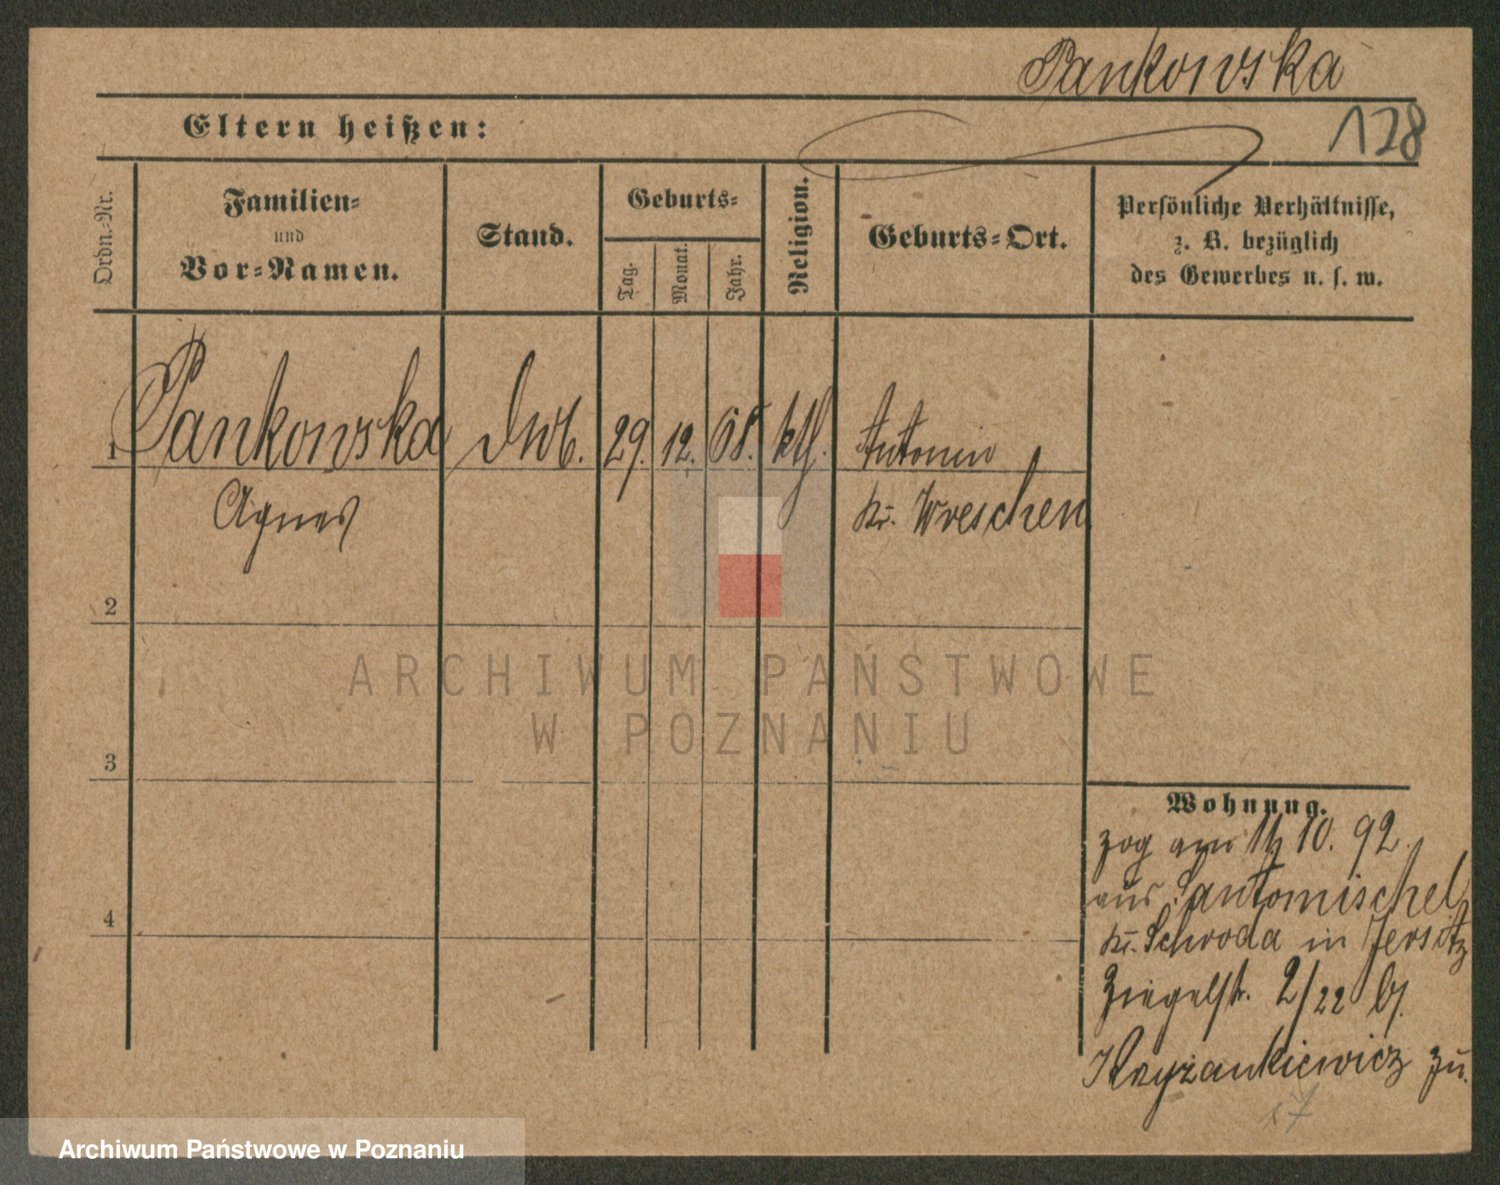 Pankowska
128
Eltern heißen:
Ordn.-Nr.
Familien-
und
Vor-Namen.
Stand.
Geburts-
Tag.
Monat.
Jahr.
Religion.
Geburts-Ort.
Persönliche Verhältnisse,
z. B. bezüglich
des Gewerbes u. s. w.
1 Pankowska 29. 12. 68. kth. Antonin
Agnes Kr. Wreschen
2
3
4
ARCHIWUM PAŃSTWOWE
W POZNANIU
Wohnung.
zog am 10. 92.
aus Santomischel
Kr. Schroda in Jersitz
Ziegelstr. 2/22 bei
Kryzankiewicz zu.
Archiwum Państwowe w Poznaniu